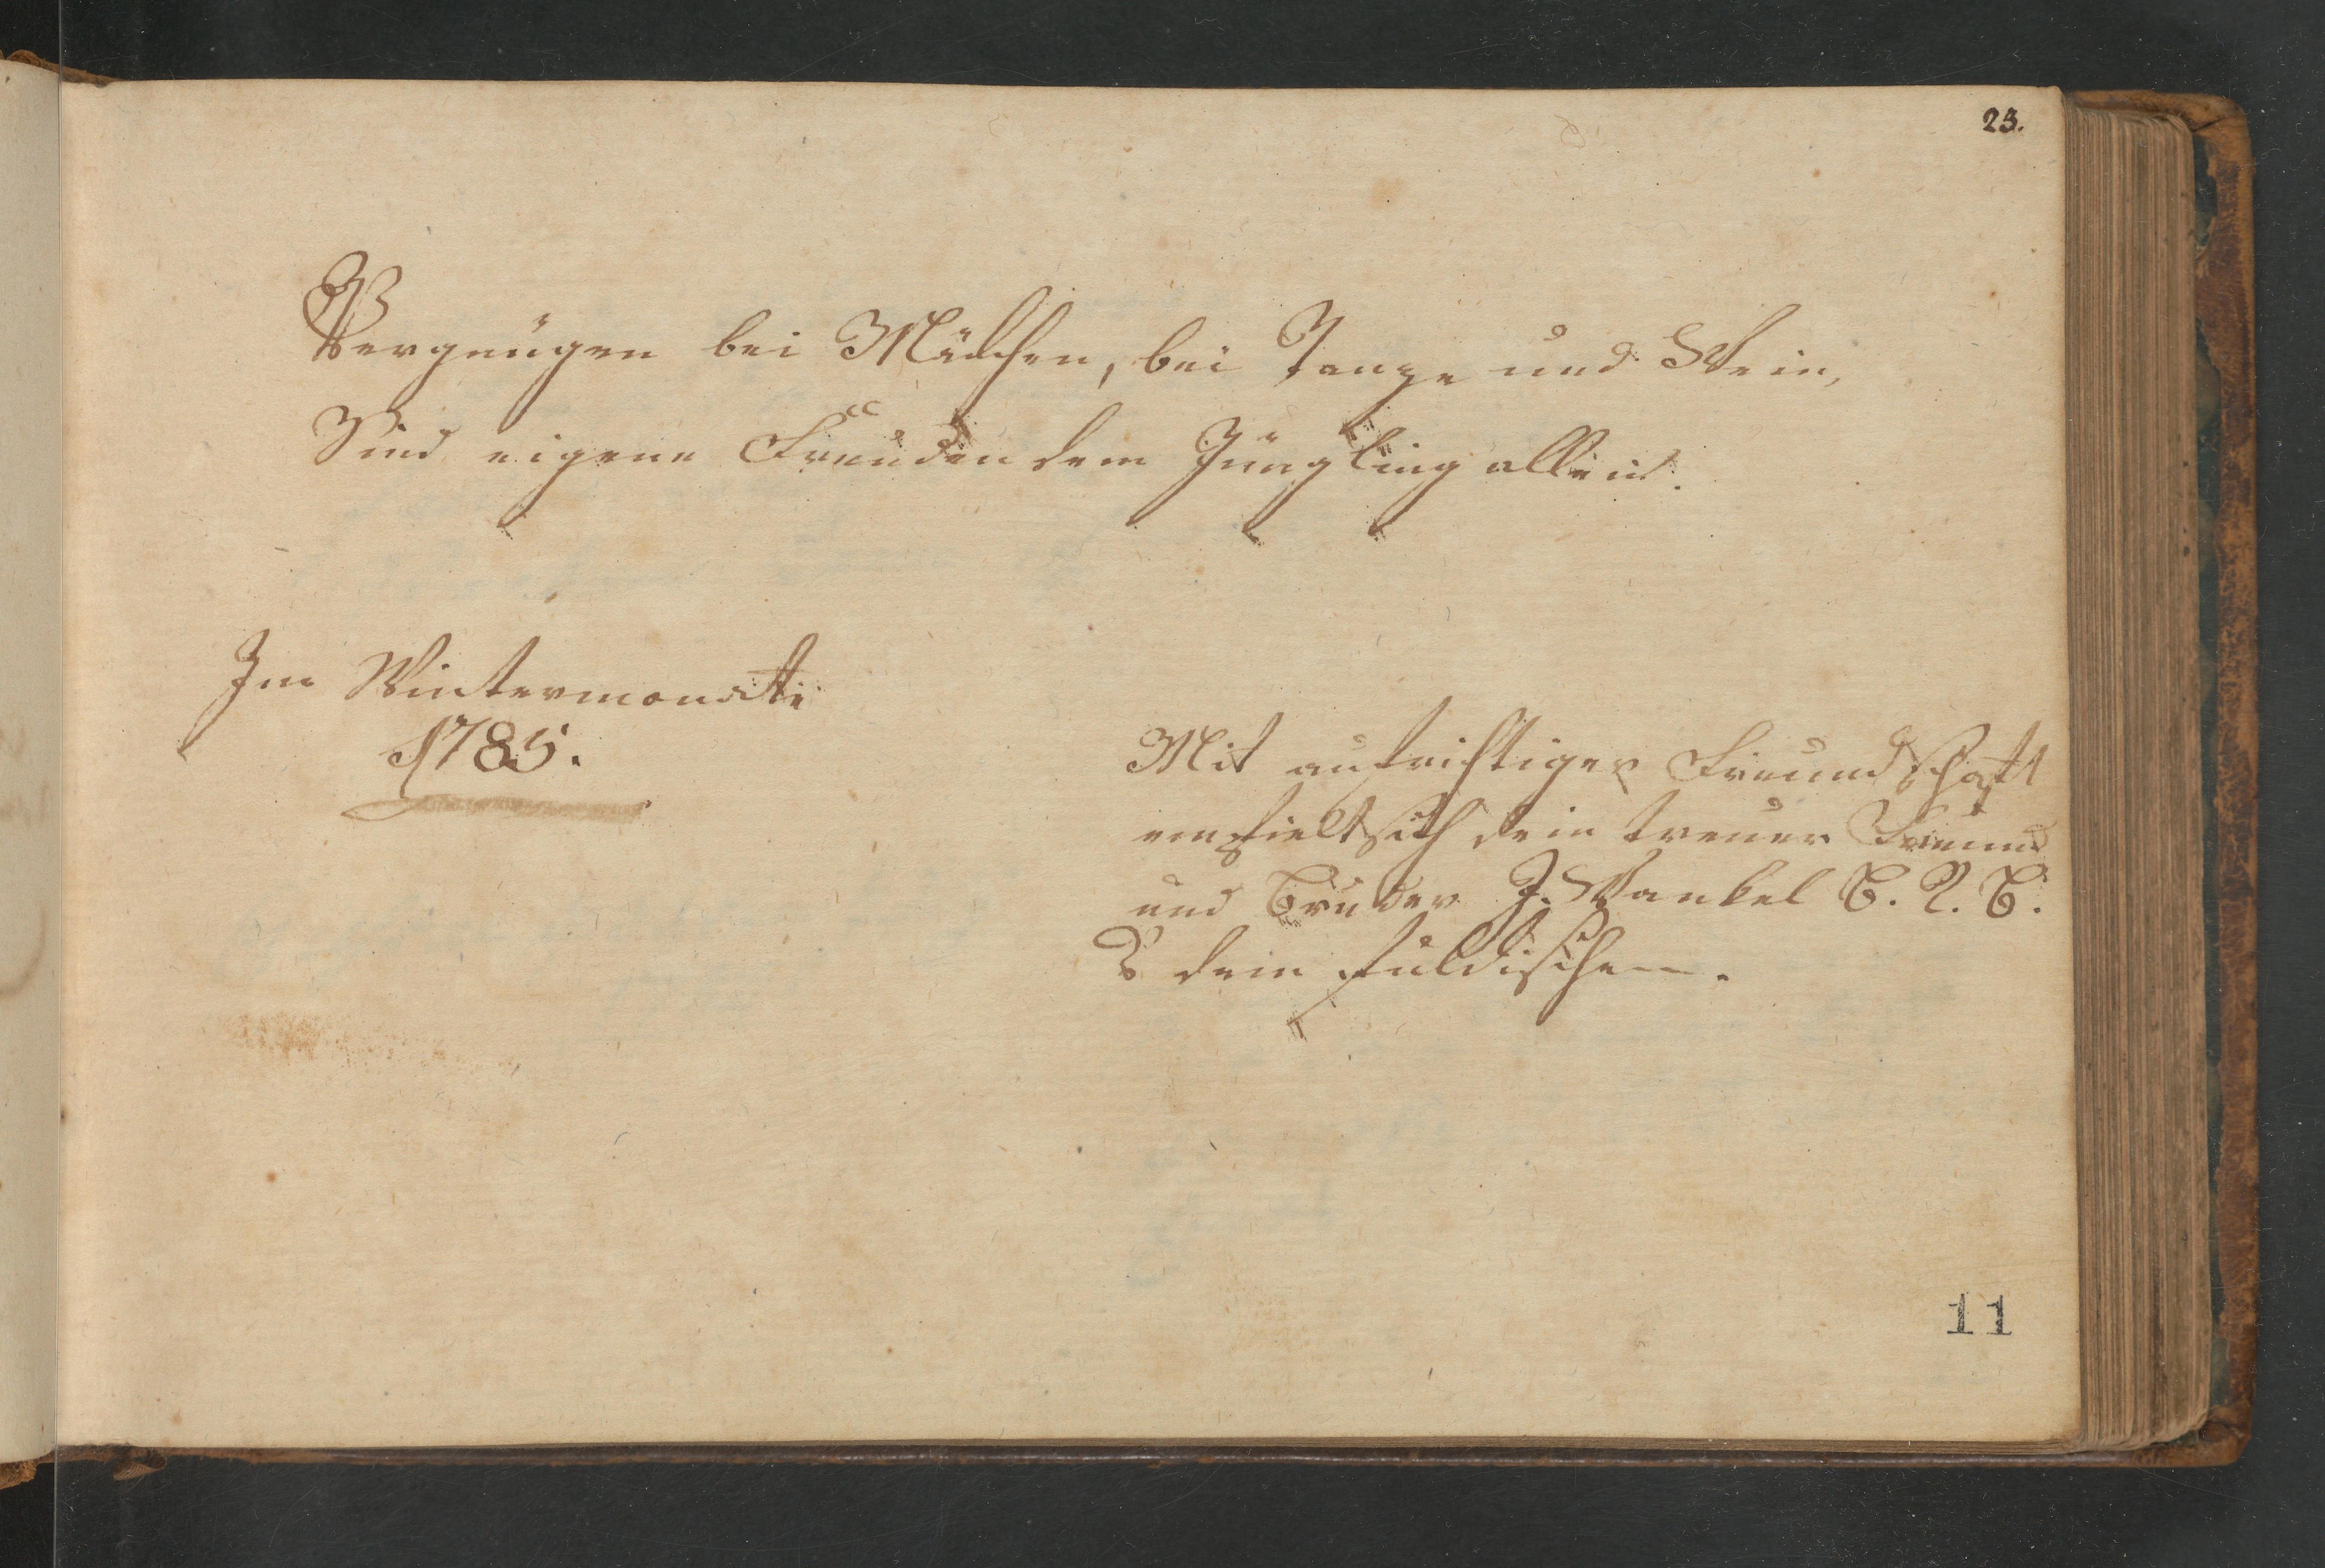 23.
Vergnügen bei Mädchen, bei Tanze und Wein,
Sind eigene Freuden dem Jüngling allein.
Im Wintermonate
1785.
Mit aufrichtiger Freundschaft
empfielt sich dein treuer Freund
und Bruder J. Wankel
dem fuldischen.
11